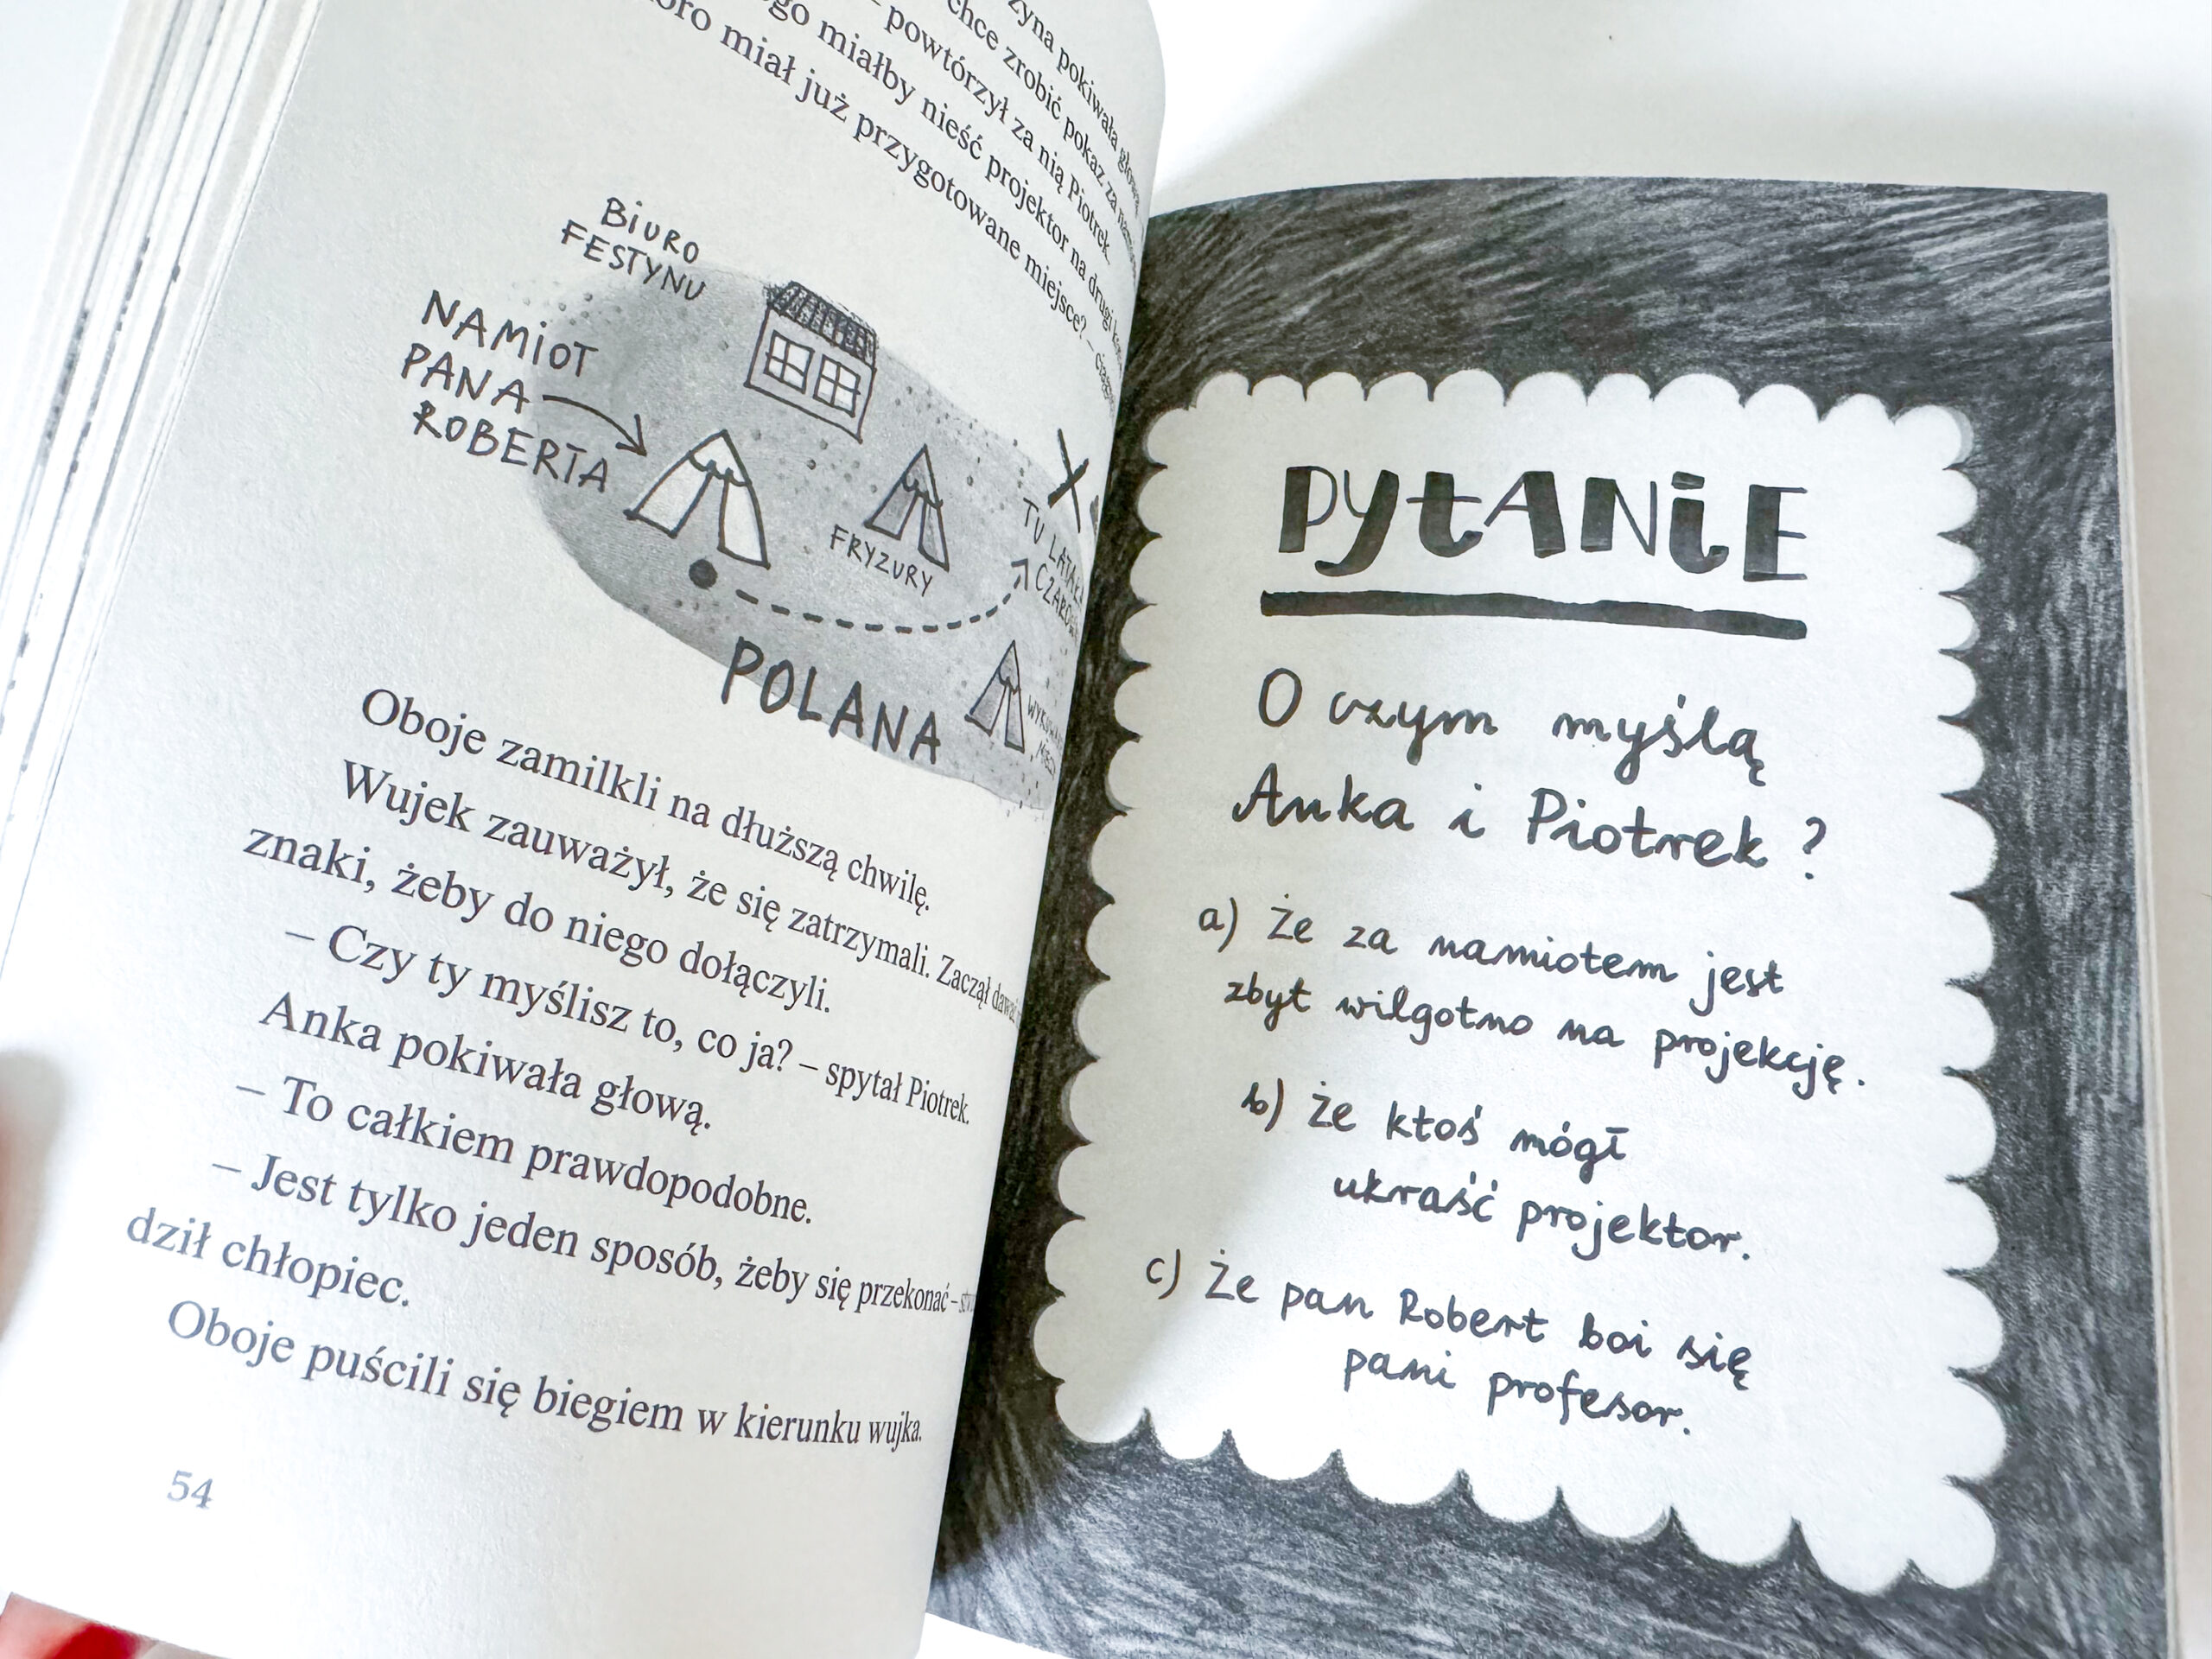 pokiwała głową
chce zrobić pokaz za
– powtórzył za nią Piotrek.
miałby nieść projektor na drugi
miał już przygotowane miejsce? –
BiURO
FESTYNU
NAMiOT
PANA
ROBERTA
FRYZURY
TU
POLANA
Oboje zamilkli na dłuższą chwilę.
Wujek zauważył, że się zatrzymali. Zaczął
znaki, żeby do niego dołączyli.
– Czy ty myślisz to, co ja? – spytał Piotrek.
Anka pokiwała głową.
– To całkiem prawdopodobne.
– Jest tylko jeden sposób, żeby się przekonać –
dził chłopiec.
Oboje puścili się biegiem w kierunku wujka.
54
PYtANiE
O czym myślą
Anka i Piotrek ?
a) Że za namiotem jest
zbyt wilgotno na projekcję.
b) Że ktoś mógł
ukraść projektor.
c) Że pan Robert boi się
pani profesor.